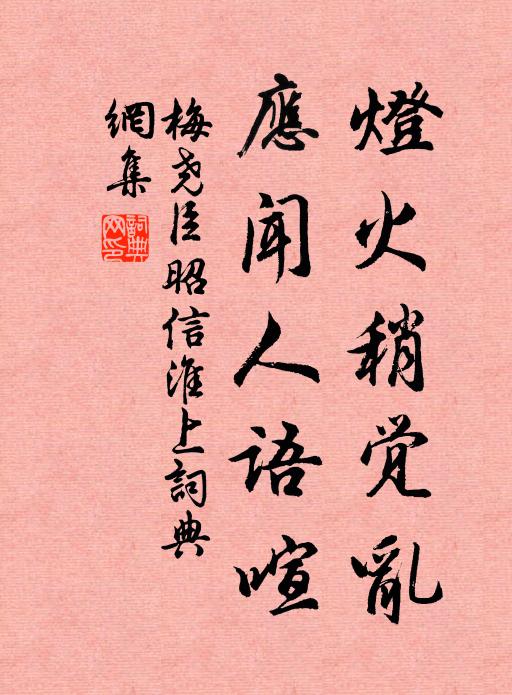 燈火稍覺亂
應聞人語喧
梅尧臣昭信淮上詞典
網集
詞典網印